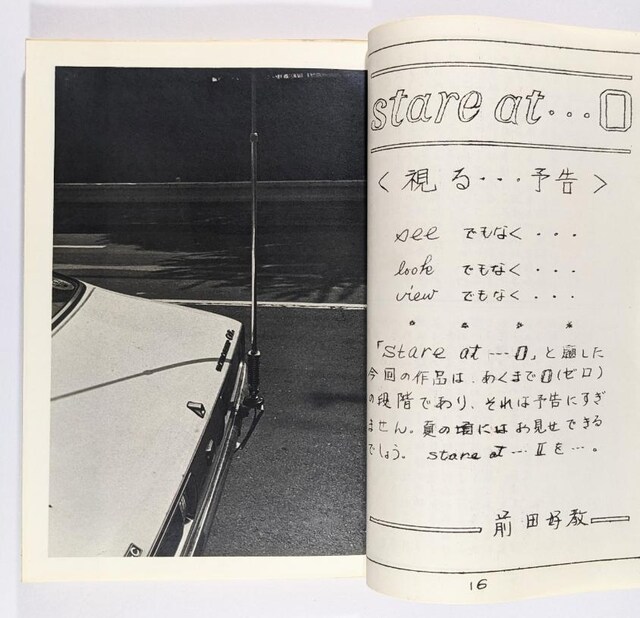 stare at...0
〈視る・・・予告〉
see でもなく・・・
look でもなく・・・
view でもなく・・・
「stare at…0」と題した
今回の作品は、あくまで0(ゼロ)
の段階であり、それは予告にすぎ
ません。夏の頃にはお見せできる
でしょう。 stare at … II を…。
前田好教
16